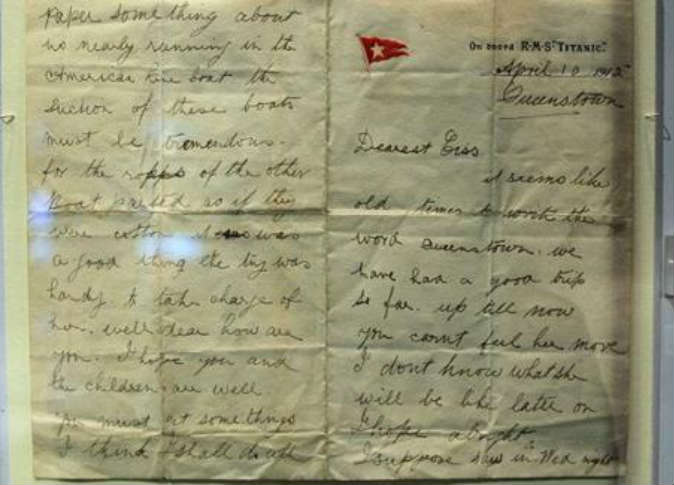 On board R·M·S "TITANIC".
April 10 1912
Queenstown
Dearest Ciss
it seems like
old times to write the
word Queenstown. we
have had a good trip
so far. up till now
you carnt feel her move
I dont know what she
will be like later on
I hope alright.
I suppose saw in Wed night
paper something about
us nearly running in the
American line boat the
suction of these boats
must be tremendous.
for the ropes of the other
Boat parted as if they
were cotton it was
a good thing the tug was
handy to take charge of
her. well dear how are
you. I hope you and
the children are well
you must get some things
I think I shall do all